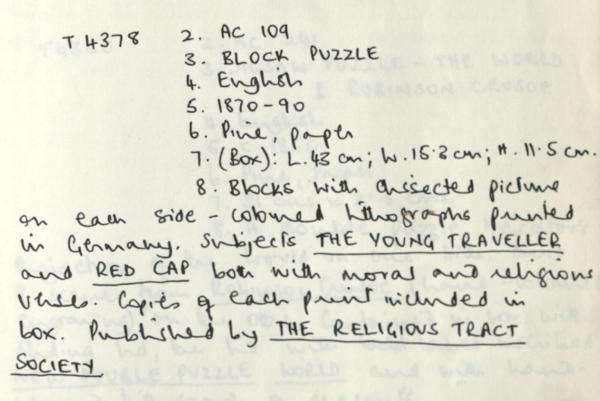 T 4378 2. AC 109
3. BLOCK PUZZLE
4. English
5. 1870-90
6. Pine, paper
7. (Box): L. 43 cm; W. 15.3 cm; H. 11.5 cm.
8. Blocks with dissected picture
on each side - coloured lithographs printed
in Germany. Subjects THE YOUNG TRAVELLER
and RED CAP both with moral and religious
verses. Copies of each print included in
box. Published by THE RELIGIOUS TRACT
SOCIETY